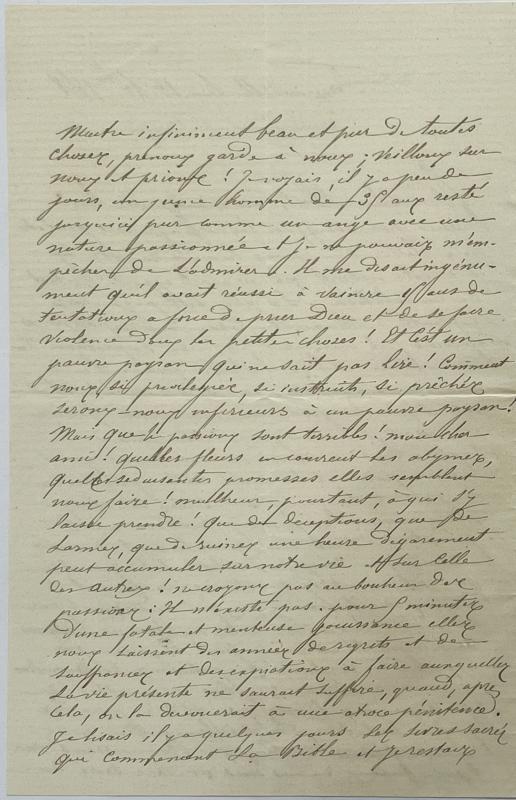 Maitre infiniment beau et pur de toutes
choses, prenons garde à nous; veillons sur
nous et prions! Je voyais, il y a peu de
jours, un jeune homme de 35 ans resté
jusqu'ici pur comme un ange avec une
nature passionnée et je ne pouvais m'em-
pêcher de l'admirer. Il me disait ingénu-
ment qu'il avait réussi à vaincre ans de
tentations a force de prier Dieu et de se faire
violence dans les petites choses! Et c'est un
pauvre paysan qui ne sait pas lire! Comment
nous si privilégiés, si instruits, si prêchés
serons-nous inférieurs à un pauvre paysan!
Mais que les passions sont terribles! mon cher
ami! quelles fleurs en couvrent les abymes,
quelles séduisantes promesses elles semblent
nous faire! malheur, pourtant, à qui s'y
laisse prendre! Que de déceptions, que de
larmes, que de ruines une heure d'égarement
peut accumuler sur notre vie et sur celle
des autres! ne croyons pas au bonheur des
passions: Il n'existe pas. pour 5 minutes
D'une fatale et menteuse jouissance elles
nous laissent des années de regrets et de
souffrances et des expiations à faire auxquelles
la vie présente ne saurait suffire, quand, après
cela, on la devouerait à une atroce pénitence.
Je lisais il y a quelques jours les livres sacrés
qui commencent la Bible et je restais